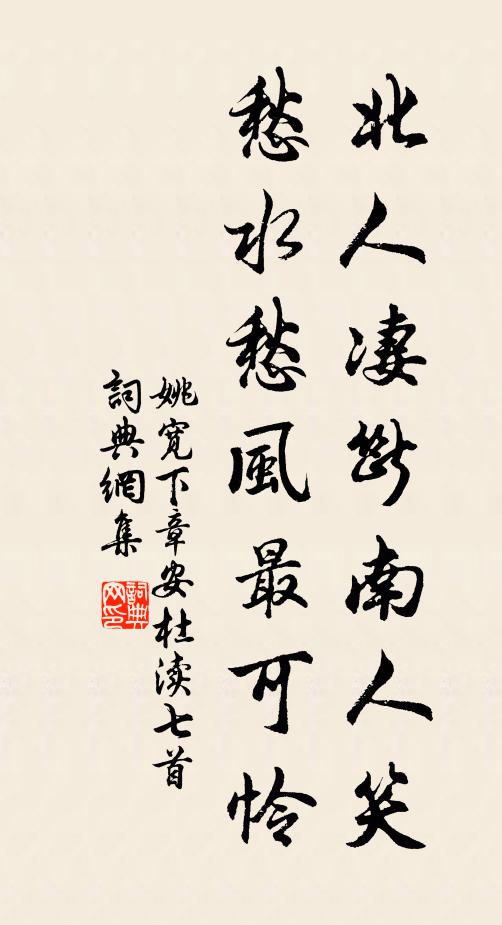 北人凄斷南人笑
愁水愁風最可怜
姚寬下章安杜渎七首
詞典網集
詞典网印